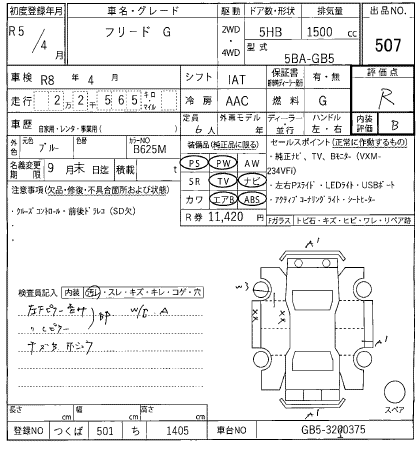 初度登録年月 車名・グレード 駆動 ドア数・形状 排気量 出品No.
R5/4月 フリード G 2WD・4WD 5HB 1500 cc 507
型式 5BA-GB5
車検 R8年4月 シフト IAT 保証書 有・無 評価点
走行 22565 キロ・マイル 冷房 AAC 燃料 G R
車歴 自家用・レンタ・事業用( ) 定員 6人 外車モデル 年 ディーラー・並行 ハンドル 左・右 内装評価 B
外色 元色 ブルー 色替 カラーNO B625M
装備品(純正品に限る) セールスポイント(正常に作動するもの)
名義変更期限 9月末日迄 積載 t
PS PW AW
・純正ナビ、TV、Bモニター(VXM-234VFi)
注意事項(欠品・修復・不具合箇所および状態)
SR TV ナビ
・左右Pスライド・LEDライト・USBポート
・クルーズコントロール・前後ドラレコ(SD欠)
カワ エアB ABS
・アクティブコーナリングライト・シートヒーター
R券 11,420円
Fガラス トビ石・キズ・ヒビ・ワレ・リペア跡
検査員記入 内装 汚れ・スレ・キズ・キレ・コゲ・穴
W/C A
A1
W3
XX
XX
A1
A1
スペア
長さ cm 幅 cm 高さ cm
登録NO つくば 501 ち 1405 車台NO GB5-3200375